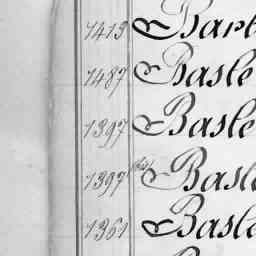 1413 Bart
1487 Basle
1397 Basle
1397 Basl
1361 Basle